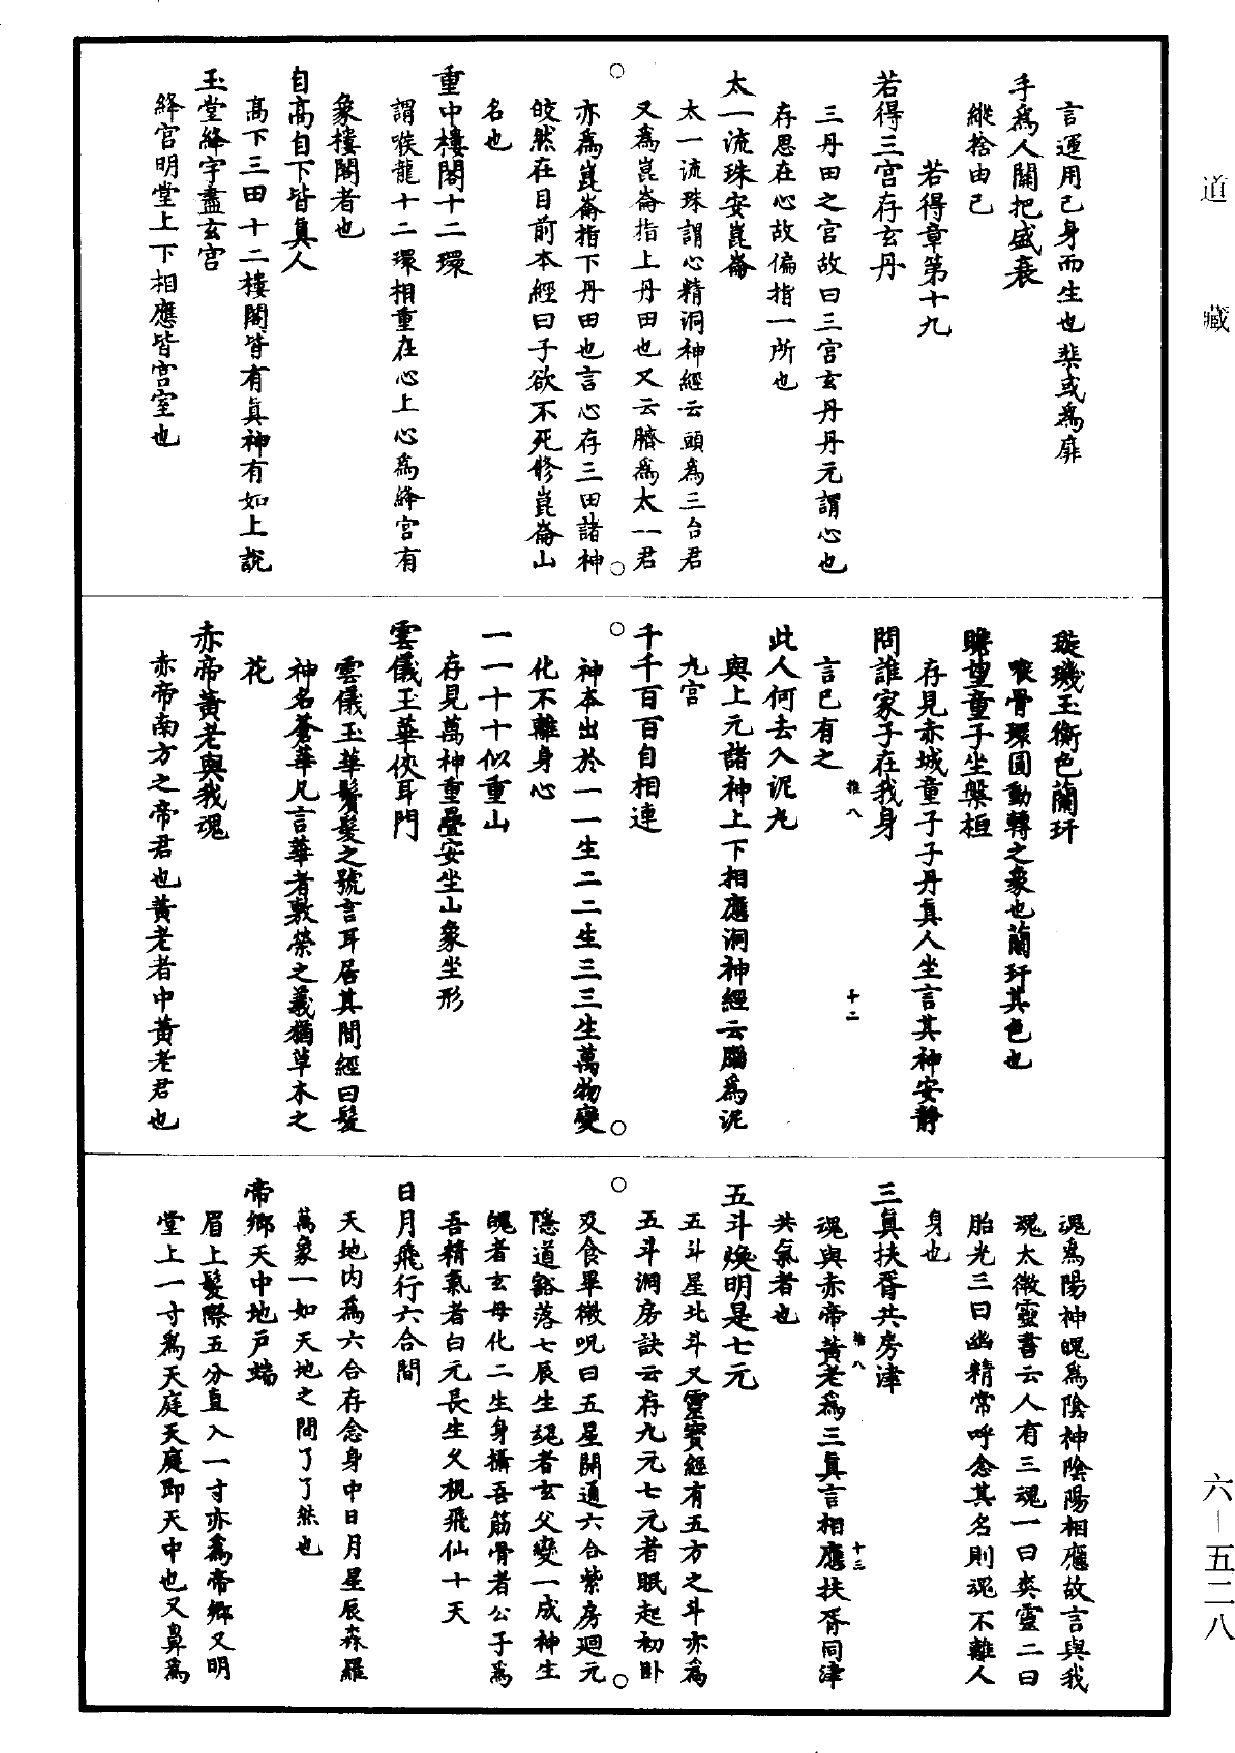 道藏
六-五二八
言運用己身而生也棐或為扉
手為人關把盛衰
縱捨由己
若得章第十九
若得三宮存玄丹
三丹田之宮故曰三宮玄丹丹元謂心也
存思在心故偏指一所也
太一流珠安崑崙
太一流珠謂心精洞神經云頭為三台君
又為崑崙指上丹田也又云臍為太一君
亦為崑崙指下丹田也言心存三田諸神
皎然在目前本經曰子欲不死修崑崙山
名也
重中樓閣十二環
謂喉龍十二環相重在心上心為絳宮有
象樓閣者也
自高自下皆真人
高下三田十二樓閣皆有真神有如上說
玉堂絳宇盡玄宮
絳宮明堂上下相應皆宮室也
璇璣玉衡色蘭玕
喉骨環圓動轉之象也蘭玕其色也
瞻望童子坐槃桓
存見赤城童子子丹真人坐言其神安靜
問誰家子在我身
言已有之
推八
十二
此人何去入泥丸
與上元諸神上下相應洞神經云腦為泥
九宮
千千百百自相連
神本出於一一生二二生三三生萬物變
化不離身心
一一十十似重山
存見萬神重疊安坐山象坐形
雲儀玉華俠耳門
雲儀玉華鬢髮之號言耳居其間經曰髮
神名蒼華凡言華者敷榮之義猶草木之
花
赤帝黃老與我魂
赤帝南方之帝君也黃老者中黃老君也
魂為陽神魄為陰神陰陽相應故言與我
魂太微靈書云人有三魂一曰爽靈二曰
胎光三曰幽精常呼念其名則魂不離人
身也
三真扶胥共房津
八
十三
魂與赤帝黃老為三真言相應扶胥同津
共氣者也
五斗煥明是七元
五斗星北斗又靈寶經有五方之斗亦為
五斗洞房訣云存九元七元者眠起初卧
及食畢微呪曰五星開通六合紫房迴元
隱道豁落七辰生魂者玄父變一成神生
魄者玄母化二生身攝吾筋骨者公子為
吾精氣者白元長生父視飛仙十天
日月飛行六合間
天地內為六合存念身中日月星辰森羅
萬象一如天地之間了了然也
帝鄉天中地戶端
眉上髮際五分直入一寸亦為帝鄉又明
堂上一寸為天庭天庭即天中也又鼻為